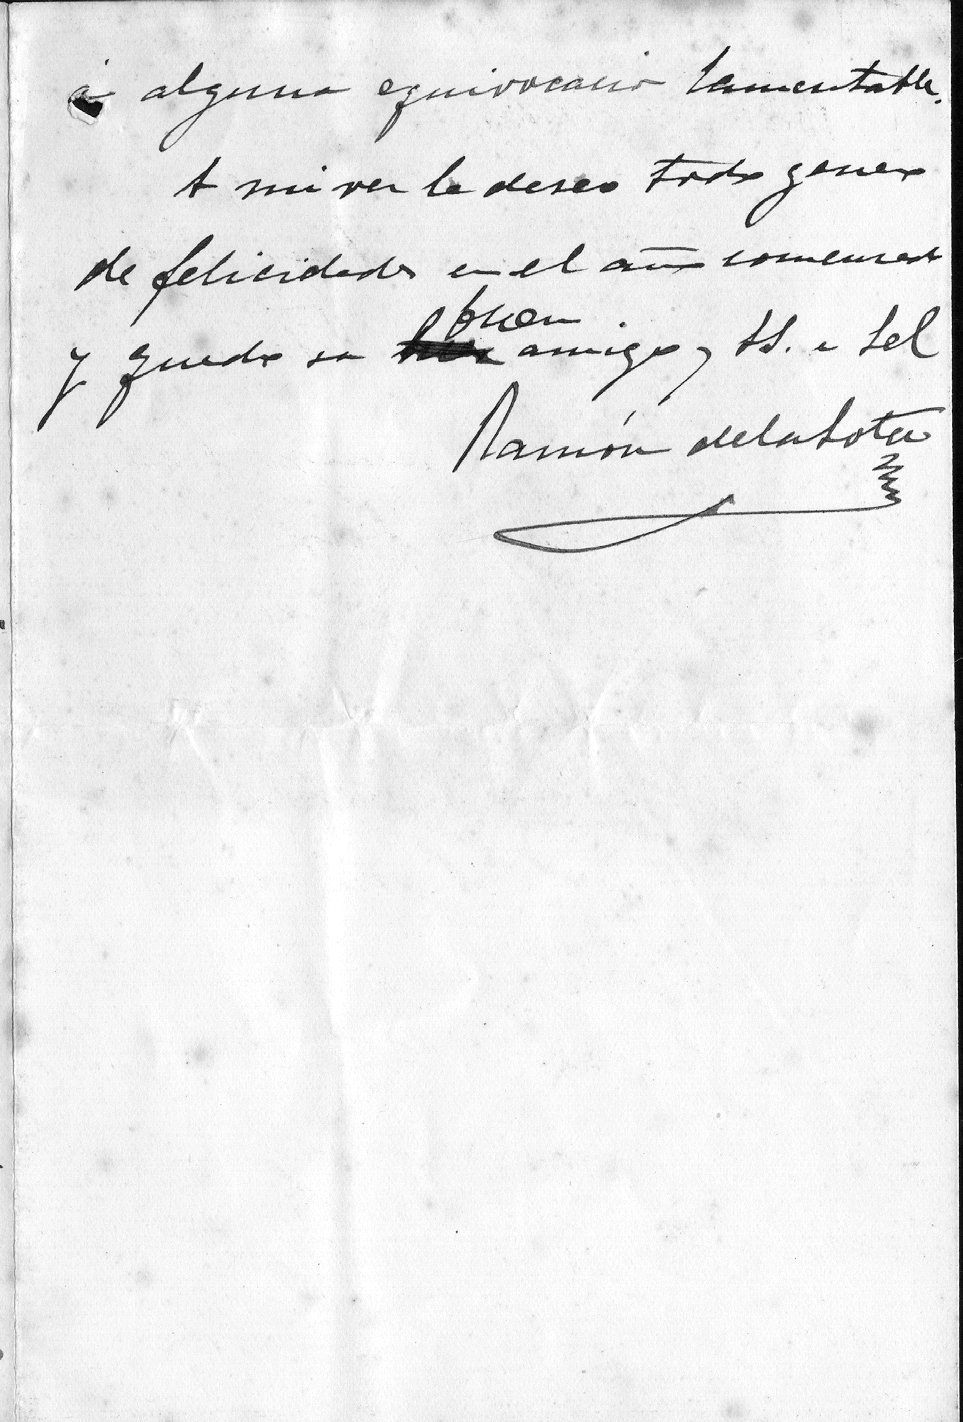 á alguna equivocación lamentable.
A mi vez le deseo todo género
de felicidades en el año comenzado
y quedo su buen amigo y SS.
Ramón de la Sota